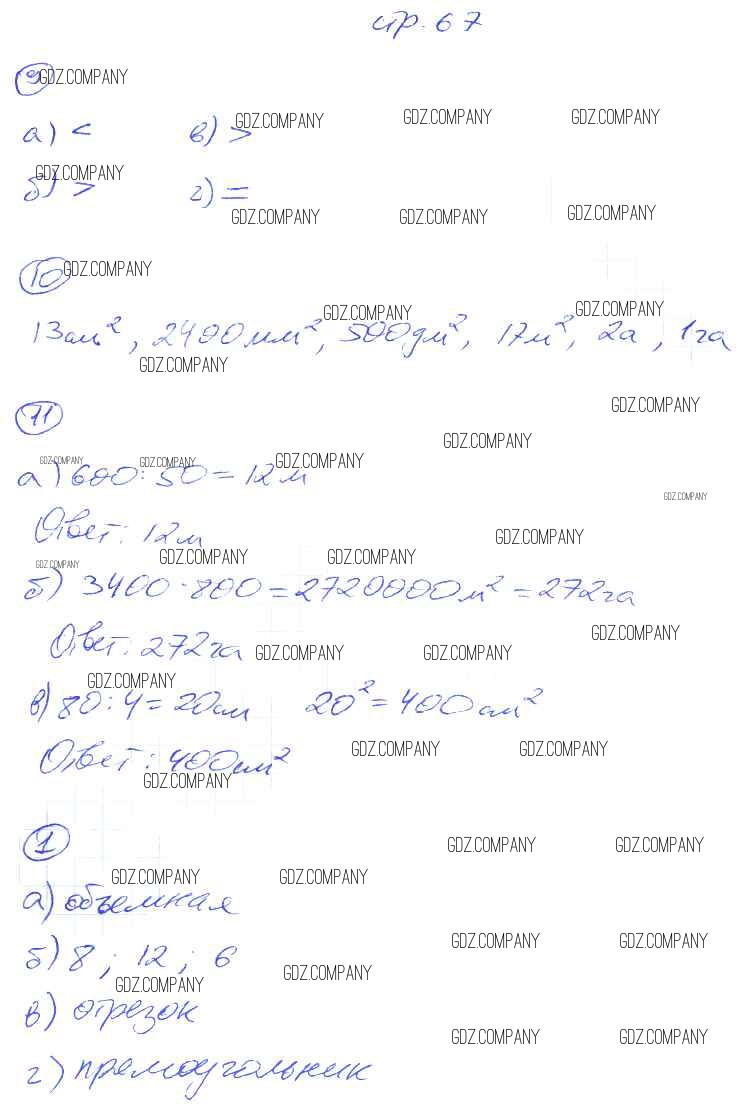 стр. 67
9 GDZ.COMPANY
а) < в) > GDZ.COMPANY GDZ.COMPANY GDZ.COMPANY
GDZ.COMPANY
б) > г) =
GDZ.COMPANY GDZ.COMPANY GDZ.COMPANY
10 GDZ.COMPANY
GDZ.COMPANY GDZ.COMPANY
13см², 2400мм², 500дм², 17м², 2а, 1га
GDZ.COMPANY
GDZ.COMPANY
11
GDZ.COMPANY
GDZ.COMPANY GDZ.COMPANY GDZ.COMPANY
а) 600:50=12м
GDZ.COMPANY
Ответ: 12м
GDZ.COMPANY
GDZ.COMPANY GDZ.COMPANY GDZ.COMPANY
б) 3400·800=2720000м²=272га
GDZ.COMPANY
Ответ: 272га GDZ.COMPANY GDZ.COMPANY
GDZ.COMPANY
в) 80:4=20см 20²=400см²
GDZ.COMPANY GDZ.COMPANY
Ответ: 400см²
GDZ.COMPANY
1 GDZ.COMPANY GDZ.COMPANY
GDZ.COMPANY GDZ.COMPANY
а) объемная
GDZ.COMPANY GDZ.COMPANY
б) 8 ; 12 ; 6
GDZ.COMPANY
GDZ.COMPANY
в) отрезок
GDZ.COMPANY GDZ.COMPANY
г) прямоугольник